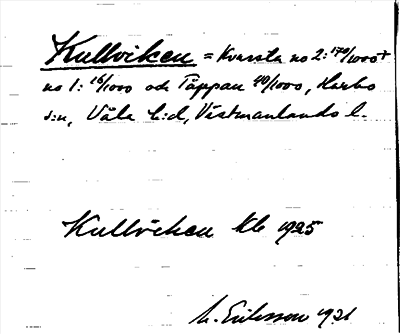 Kullviken = Kvarsta no 2: 170/1000 +
no 1: 16/1000 och Täppan 40/1000, Harbo
s:n, Våla h:d, Västmanlands l.
Kullviken kb 1925
Eriksson 1931